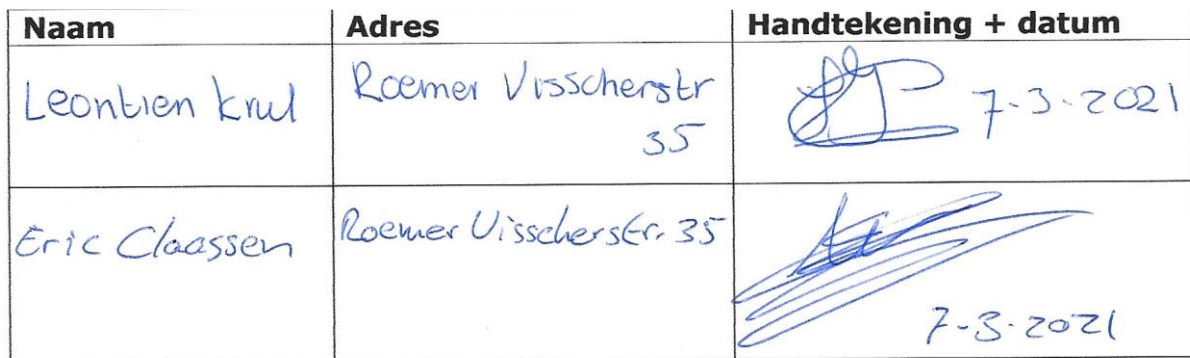 Naam Adres Handtekening + datum
Leontien Krul Roemer Visscherstr 7-3-2021
35
Eric Claassen Roemer Visscherstr. 35
7-3-2021